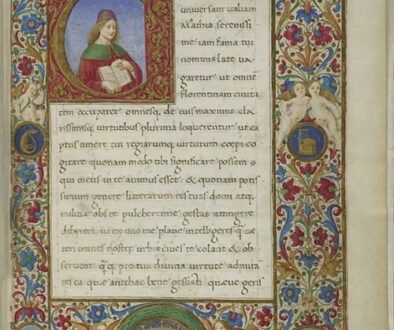 universam italiam
Mathia serenissi
me iam fama tui
nominis late va
garetur ut omnē
florentinam civita
tem occuparet omnesq; de tuis maxime cla
rissimisq; virtutibus plurima loquerentur ut ca
ptus amore tui regiarumq; virtutum coepi co
gitare quonam modo tibi significare possem
qui meus in te animus esset & quonam potis
simum genere literarum res tuas domi atq;
abs te pulcherrime gestas attingere
deberem ut uno me plane intelligeres
teri omnes urbis cives te colant & ob
servent pro tua divina virtute admira
ea quae antehac bene gessisti queve geris